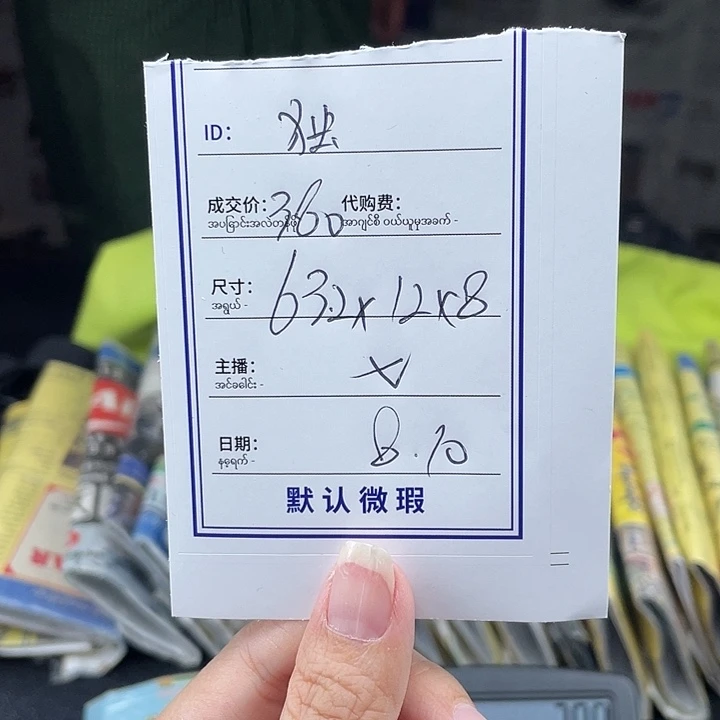 ID：独
成交价：360 代购费：
အပြောင်းအလဲတန်ဖိုး အာဂျင်စီ ဝယ်ယူမှုအခက် -
尺寸：63.2x12x8
အရွယ် -
主播：
အင်ခေါင်း -
日期：8.10
နေ့ရက် -
默认微瑕